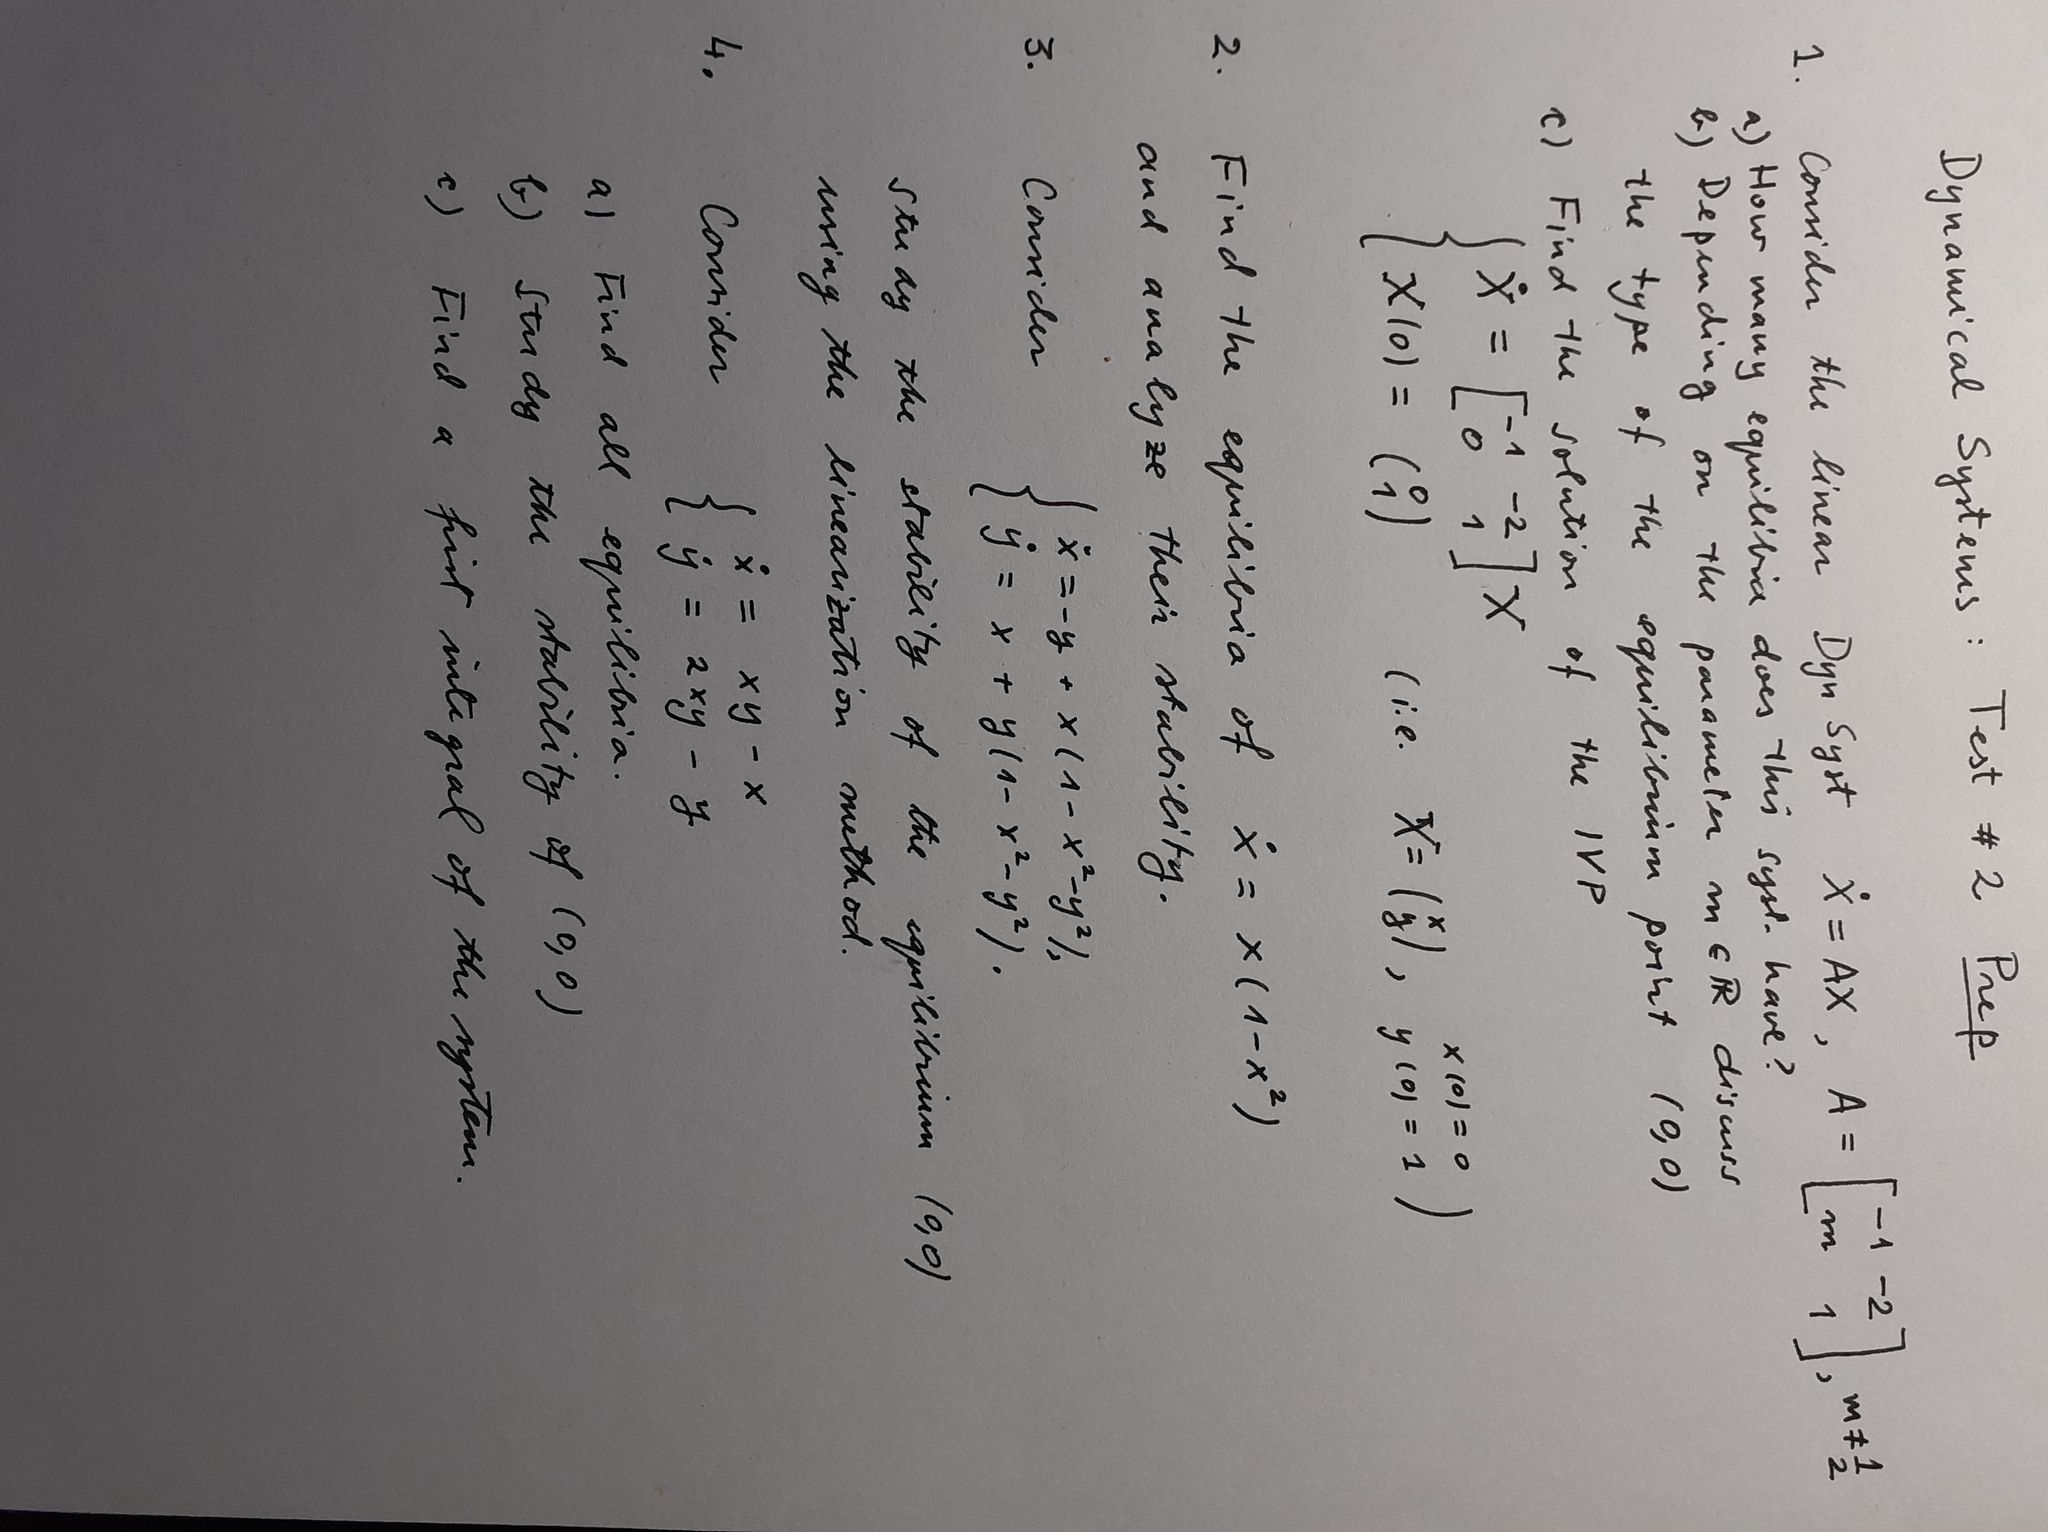 Dynamical Systems: Test #2 Prep
1. Consider the linear Dyn Syst Ẋ = AX, A = [-1 -2; m 1], m ≠ 1/2
a) How many equilibria does this syst. have?
b) Depending on the parameter m ∈ ℝ discuss
the type of the equilibrium point (0,0)
c) Find the solution of the IVP
{ Ẋ = [-1 -2; 0 1] X
X(0) = (0; 1) (i.e. X = (x; y), x(0) = 0 y(0) = 1)
2. Find the equilibria of ẋ = x(1-x²)
and analyze their stability.
3. Consider { ẋ = -y + x(1-x²-y²),
ẏ = x + y(1-x²-y²).
Study the stability of the equilibrium (0,0)
using the linearization method.
4. Consider { ẋ = xy - x
ẏ = 2xy - y
a) Find all equilibria.
b) Study the stability of (0,0)
c) Find a first integral of the system.